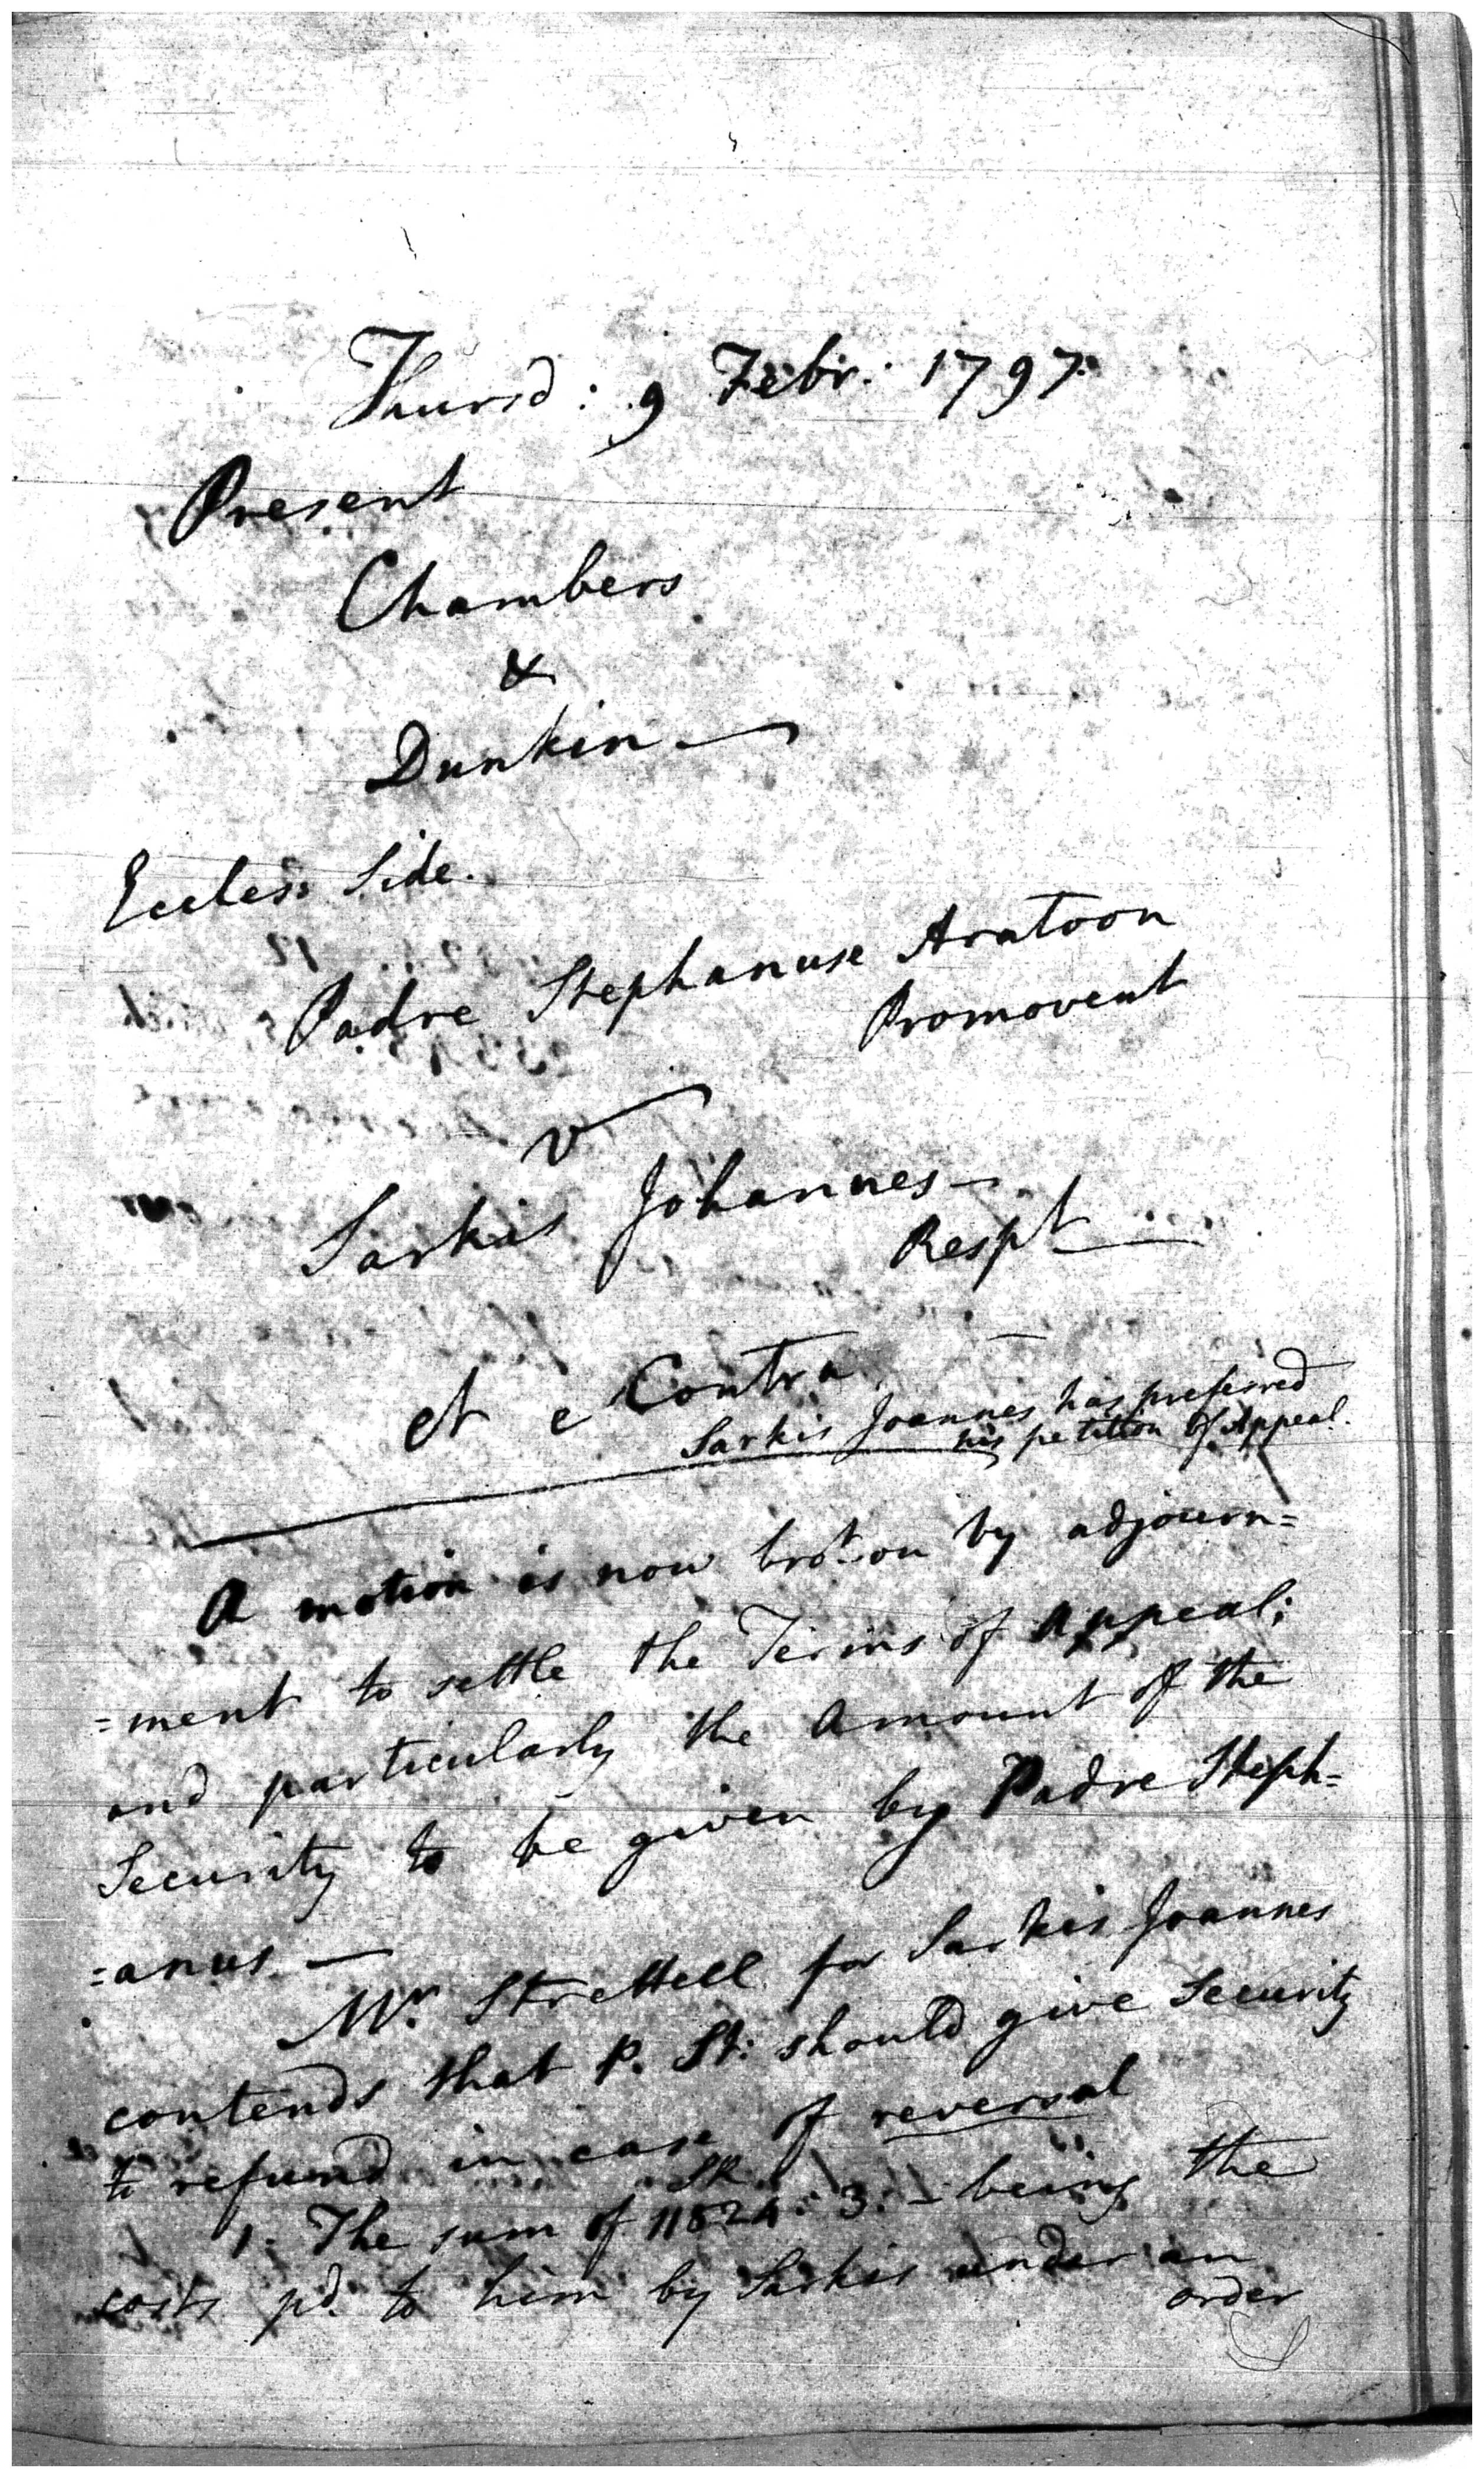 Thursd: 9 Febr: 1797.
Present
Chambers
&
Dunkin —
Eccles: Side.
Padre Stephanuse Aratoon
Promovent
v
Sarkis Johannes —
Respt
et e Contra
Sarkis Joannes has preferred
his petition of Appeal.
A motion is now brot. on by adjourn=
=ment to settle the Terms of Appeal;
and particularly the Amount of the
Security to be given by Padre Steph=
=anus —
Mr. Strettell for Sarkis Joannes
contends that P. St: should give Security
to refund in case of reversal
1. The sum of SR 11824: 3. — being the
costs pd. to him by Sarkis under an
order